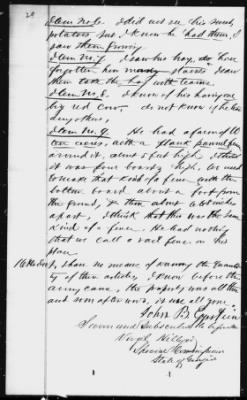 Item No. 6. I did not see his sweet
potatoes but I know he had them, I
saw them growing
Item No. 7. I saw his hay, I have
forgotten how many stacks I saw
them take the hay with teams.
Item No. 8. I know of his having one
big red cow. do not know if he had
any others,
Item No. 9. He had a farm of
acres, with a plank fence
around it, about 5 feet high, I think
it was four boards high, we used
to make that kind of a fence with the
bottom board about a foot from
the ground, & then about
apart, I think that this was the same
kind of a fence. He had nothing
that we call a rail fence on his
place.
I have no means of knowing the quantity
of these articles, I know before the
army came, the property was all there
and soon afterward, it was all gone.
John B.
Sworn and Subscribed to before me
Virgil Hillyer
Special Commissioner
State of Georgia